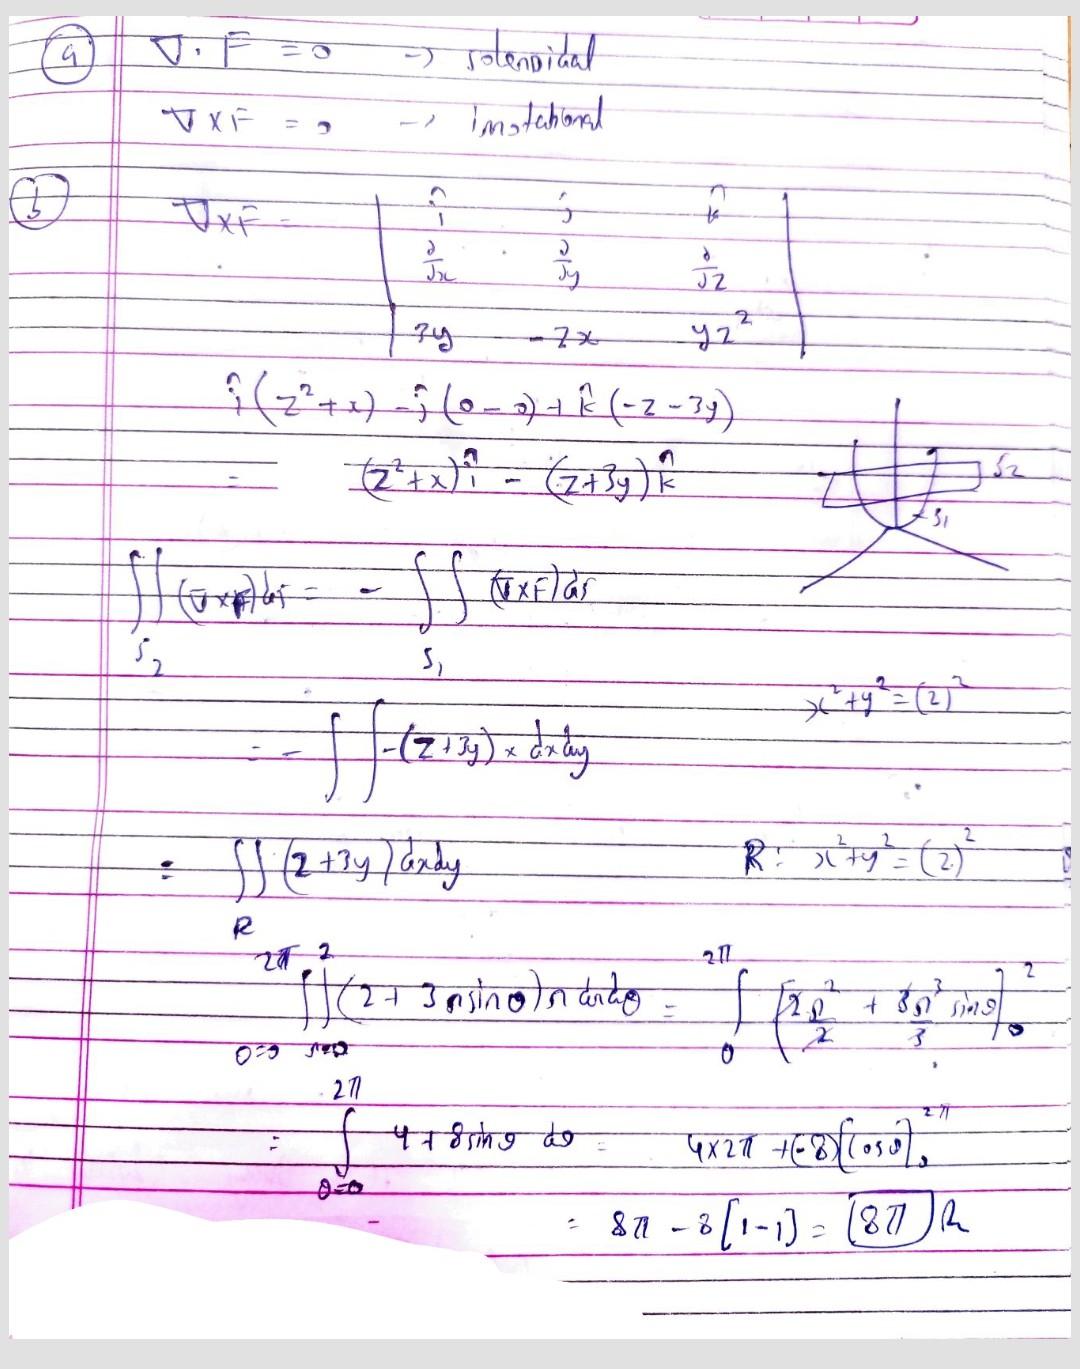 (a) ∇·F = 0 → solenoidal
∇×F = 0 → irrotational
(b) ∇×F = | î j k̂ |
| ∂/∂x ∂/∂y ∂/∂z |
| 3y -zx yz² |
î(z²+x) - ĵ(0-0) + k̂(-z-3y)
= (z²+x)î - (z+3y)k̂
S2
S1
∬S2 (∇×F)ds = - ∬S1 (∇×F)ds
x²+y²=(2)²
= - ∬ -(z+3y) × dxdy
= ∬R (2+3y)dxdy R: x²+y²=(2)²
∫θ=0^2π ∫r=0^2 (2+3r sinθ) r dr dθ = ∫0^2π [2r²/2 + 3r³/3 sinθ]0^2
= ∫θ=0^2π 4+8sinθ dθ = 4×2π +(-8)[cosθ]0^2π
= 8π - 8[1-1] = 8π